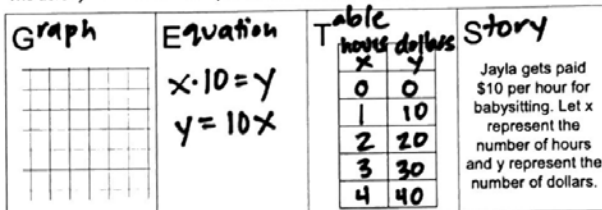 Graph
Equation
x·10=y
y=10x
Table
hours dollars
x y
0 0
1 10
2 20
3 30
4 40
Story
Jayla gets paid
$10 per hour for
babysitting. Let x
represent the
number of hours
and y represent the
number of dollars.